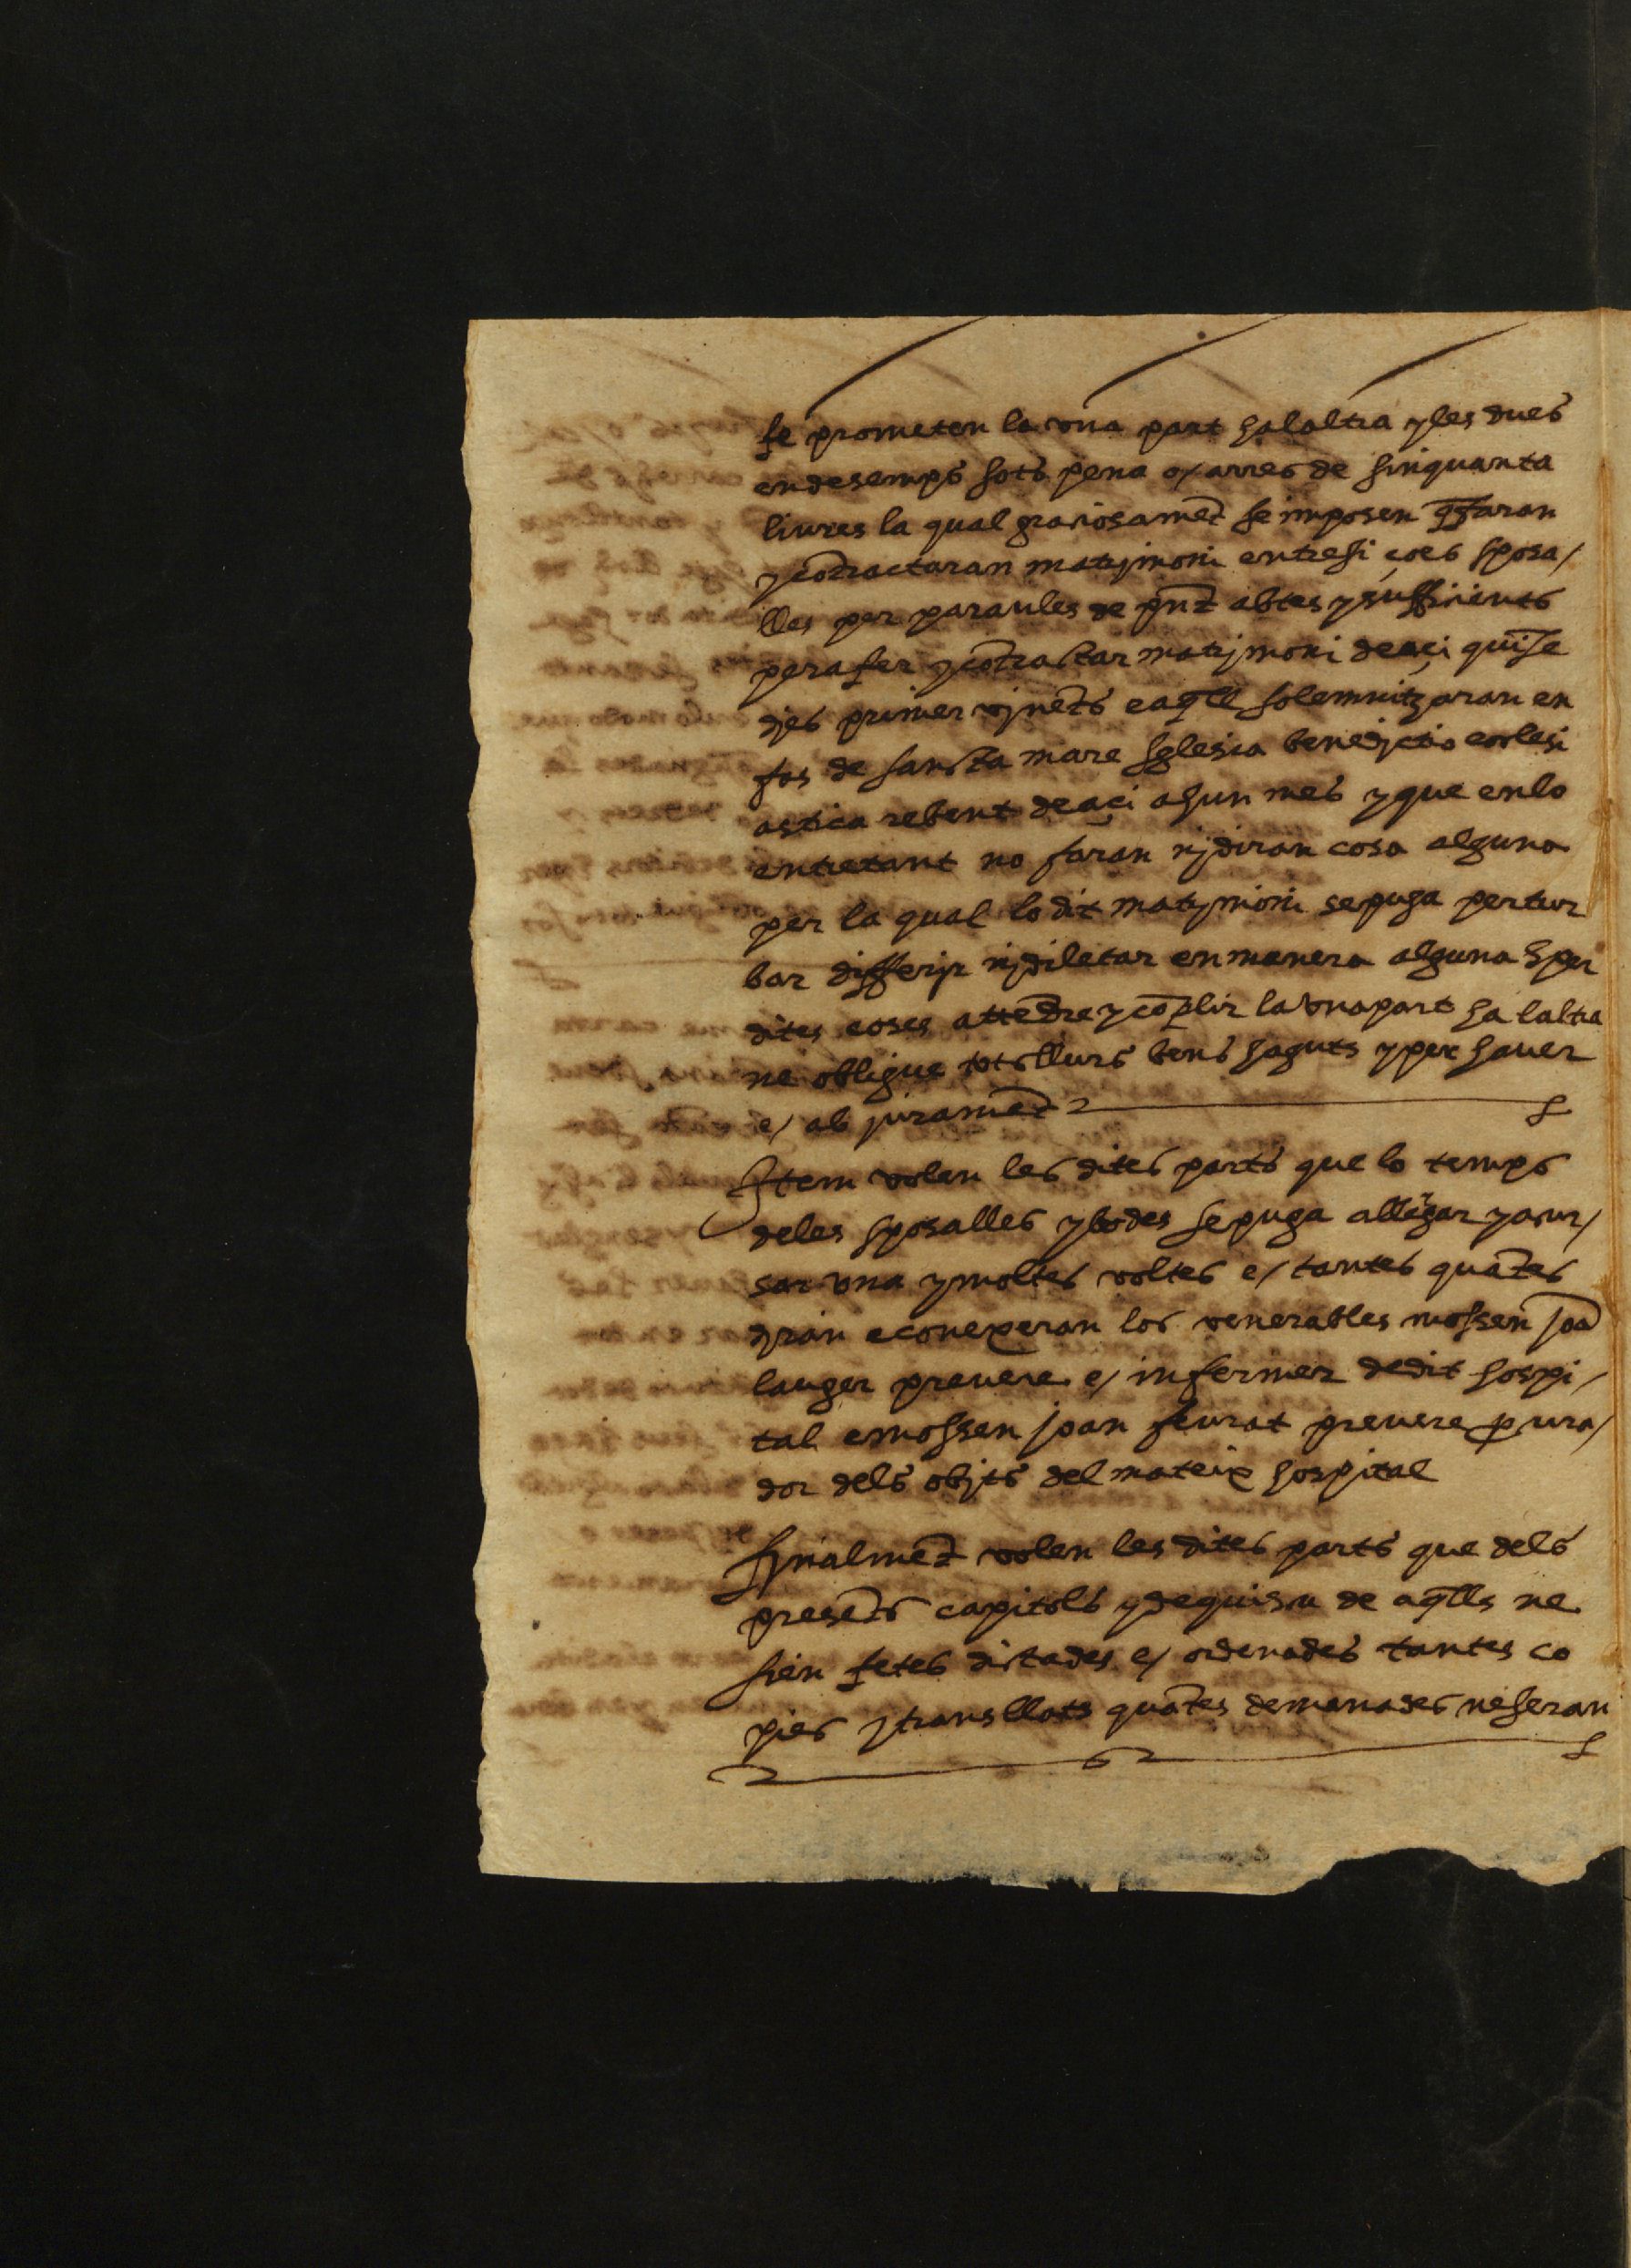 se prometen la vna part ha laltra y les dues
endesemps sots pena o/ arres de sinquanta
liures la qual graciosamēt se imposen q̄ faran
y cōtractaran matrjmoni entre si ço es sposa/
lles per paraules de pn̄t abtes y sufficients
pera fer y cōtractar matrjmoni de açi quīse
djes primer vjnēts e aq̄ll solemnitzaran en
fas de sancta mare sglesia benedjctio eclesi
astica rebent de açi a hun mes y que en lo
entretant no faran nj diran cosa alguna
per la qual lo dit matrjmoni se puga pertur
bar differjr nj diletar en manera alguna E per
dites coses attēdre y cōplir la vna part ha laltra
ne obligue tots llurs bens haguts y per hauer
e/ ab juramēt
Item volen les dites parts que lo temps
deles sposalles y bodes se puga allegar y acur/
sar vna y moltes voltes e/ tantes quātes
djran e conexeran los venerables mossen joā
lauger preuere e/ infermer de dit hospi/
tal e mossen joan ferrat preuere p̄cura/
dor dels objts del mateix hospital
Fjnalmēt volen les dites parts que dels
presēts capitols y de quiscu de aq̄lls ne
sien fetes dictades e/ ordenades tantes co
pies y transllats quātes demanades ne seran